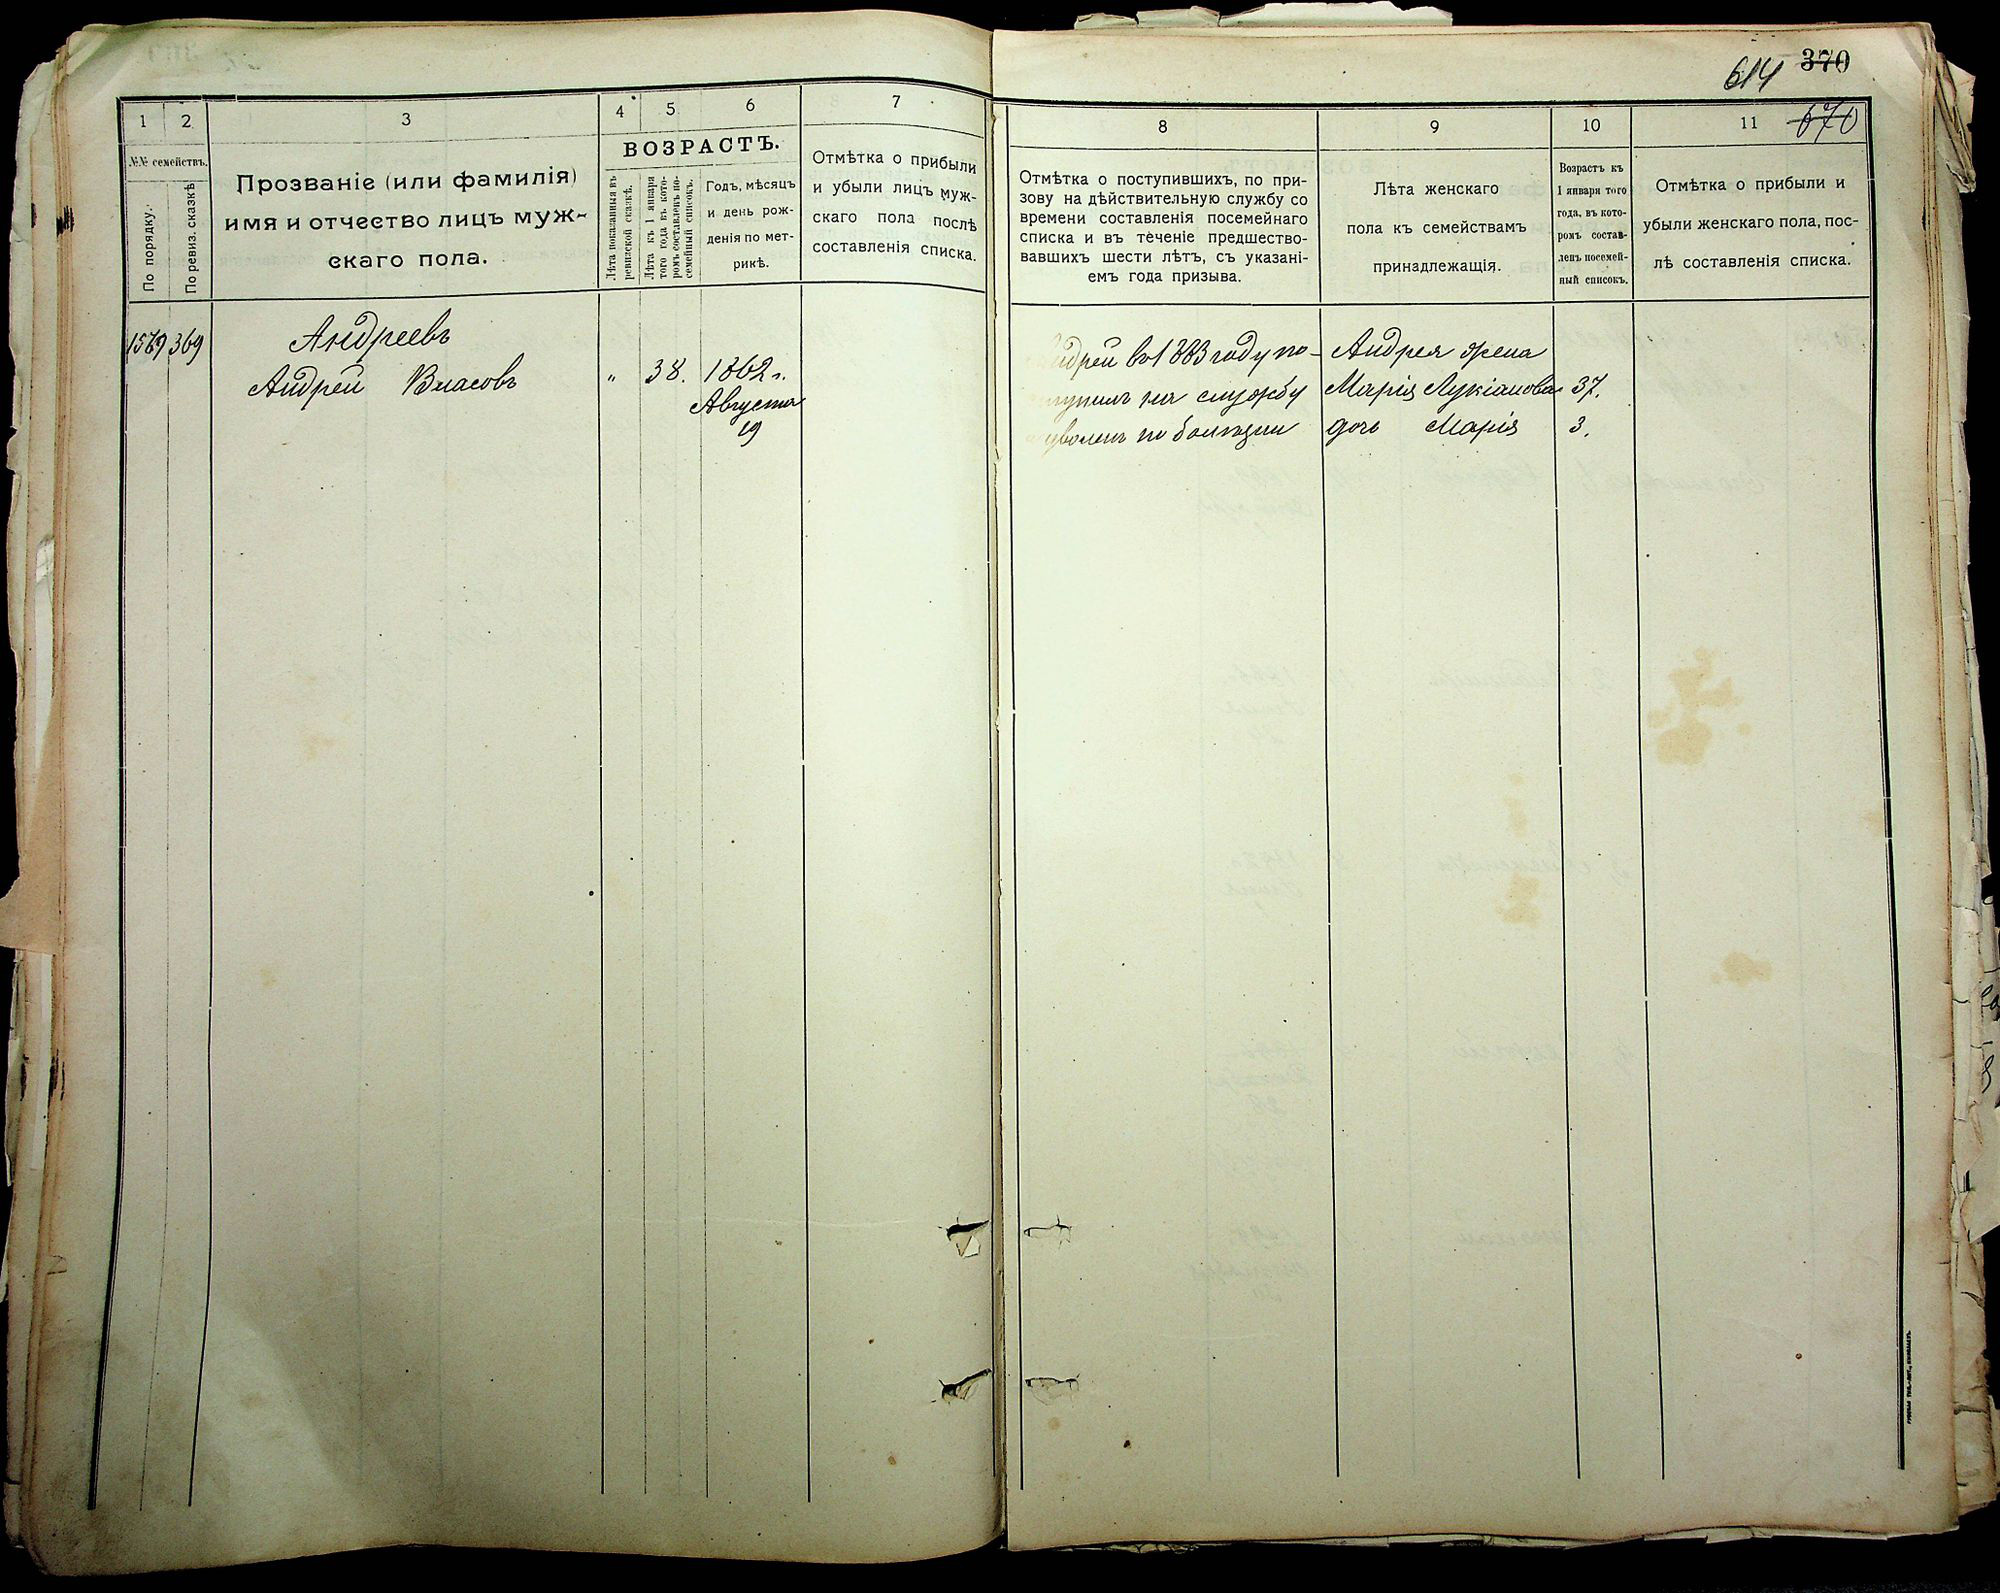 614 370
670
1 2 3 4 5 6 7
№№ семействъ.
По порядку.
По ревиз. сказкѣ
Прозваніе (или фамилія)
имя и отчество лицъ муж-
скаго пола.
ВОЗРАСТЪ.
Лѣта показанныя въ
ревизской сказкѣ.
Лѣта къ 1 января
того года въ кото-
ромъ составленъ по-
семейный списокъ.
Годъ, мѣсяцъ
и день рож-
денія по мет-
рикѣ.
Отмѣтка о прибыли
и убыли лицъ муж-
скаго пола послѣ
составленія списка.
1579 369 Андреевъ
Андрей Власовъ " 38. 1862 г.
Августа
19
8 9 10 11
Отмѣтка о поступившихъ, по при-
зову на дѣйствительную службу со
времени составленія посемейнаго
списка и въ теченіе предшество-
вавшихъ шести лѣтъ, съ указані-
емъ года призыва.
Лѣта женскаго
пола къ семействамъ
принадлежащія.
Возрастъ къ
1 января того
года, въ кото-
ромъ состав-
ленъ посемей-
ный списокъ.
Отмѣтка о прибыли и
убыли женскаго пола, пос-
лѣ составленія списка.
Андрей въ 1883 году по- Андрея жена
ступилъ на службу Марія Лукіанова 37.
уволенъ по болѣзни дочь Марія 3.